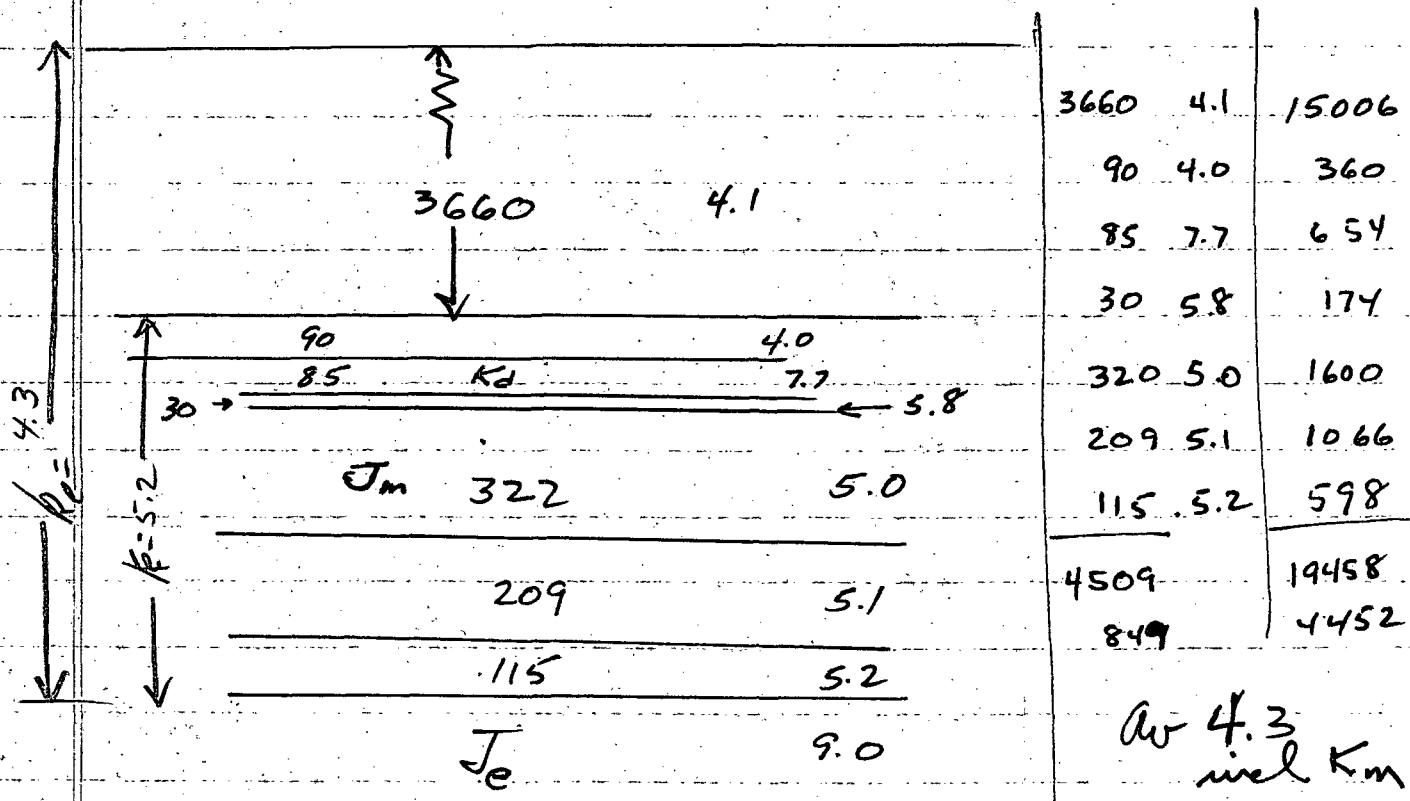 3660 4.1
90 4.0
85 Kd 7.7
30 → ← 5.8
Jm 322 5.0
209 5.1
115 5.2
Je 9.0
4.3
= 5.2
3660 4.1 15006
90 4.0 360
85 7.7 654
30 5.8 174
320 5.0 1600
209 5.1 1066
115 5.2 598
4509 19458
849 4452
av 4.3
incl Km